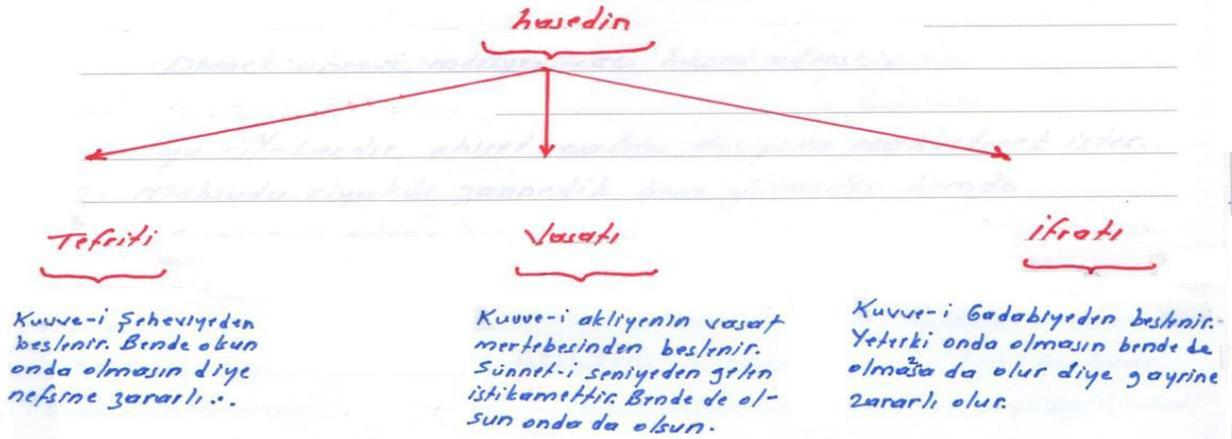 hasedin
Tefriti
Vasatı
ifratı
Kuvve-i Şeheviyeden
beslenir. Bende olsun
onda olmasın diye
nefsine zararlı..
Kuvve-i akliyenin vasat
mertebesinden beslenir.
Sünnet-i seniyeden gelen
istikamettir. Bende de ol-
sun onda da olsun.
Kuvve-i Gadabiyeden beslenir.
Yeterki onda olmasın bende de
olmasa da olur diye gayrine
zararlı olur.